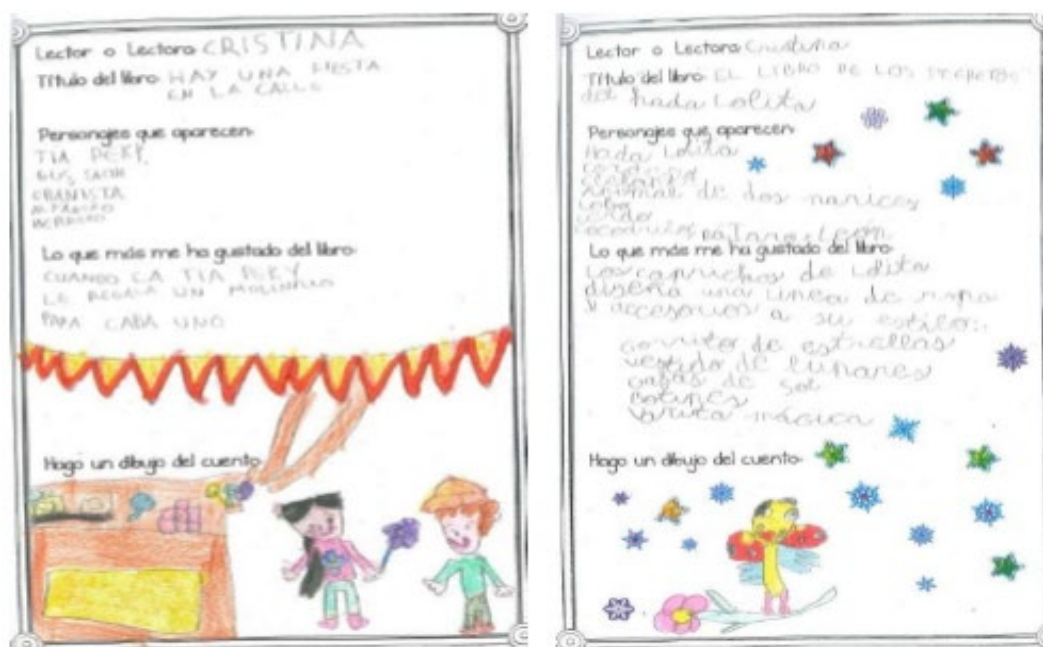 Lector o Lectora: CRISTINA
Título del libro: HAY UNA FIESTA
EN LA CALLE
Personajes que aparecen:
TIA PEKY
Lo que más me ha gustado del libro:
CUANDO LA TIA PEKY
LE REGALA UN MOLINILLO
PARA CADA UNO
Hago un dibujo del cuento:
Lector o Lectora: Cristina
Título del libro: EL LIBRO DE LOS SECRETOS
del hada Lolita
Personajes que aparecen:
Hada Lolita
animal de dos narices
lobo
cerdo
león
Lo que más me ha gustado del libro:
Los caprichos de Lolita
diseña una línea de ropa
y accesorios a su estilo:
gorrito de estrellas
vestido de lunares
gafas de sol
Botines
Varita mágica
Hago un dibujo del cuento: